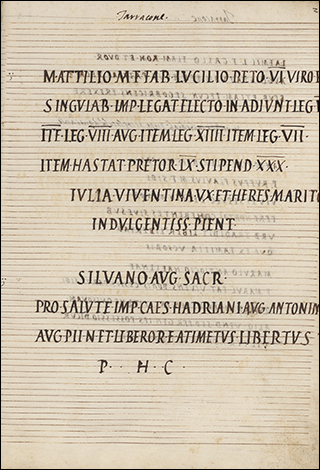 Tarracone.
2
M·ATTILIO·M·F·FAB·LVCILIO·BETO·VI·VIRO V
SINGVIAB·IMP·LEGAT·ELECTO·IN·ADIVNT·LEG·
III·LEG·VIII·AVG·ITEM·LEG·XIIII·ITEM·LEG·VII·
ITEM·HASTAT·PRETOR·IX·STIPEND·XXX·
IVLIA·VIVENTINA·VX·ET·HERES·MARITO
INDVLGENTISS·PIENT·
SILVANO·AVG·SACR:
PRO·SALVTE·IMP·CAES·HADRIANI·AVG·ANTONIN
AVG·PII·NET·LIBEROR·EATIMETVS·LIBERTVS
P· ·H· C·